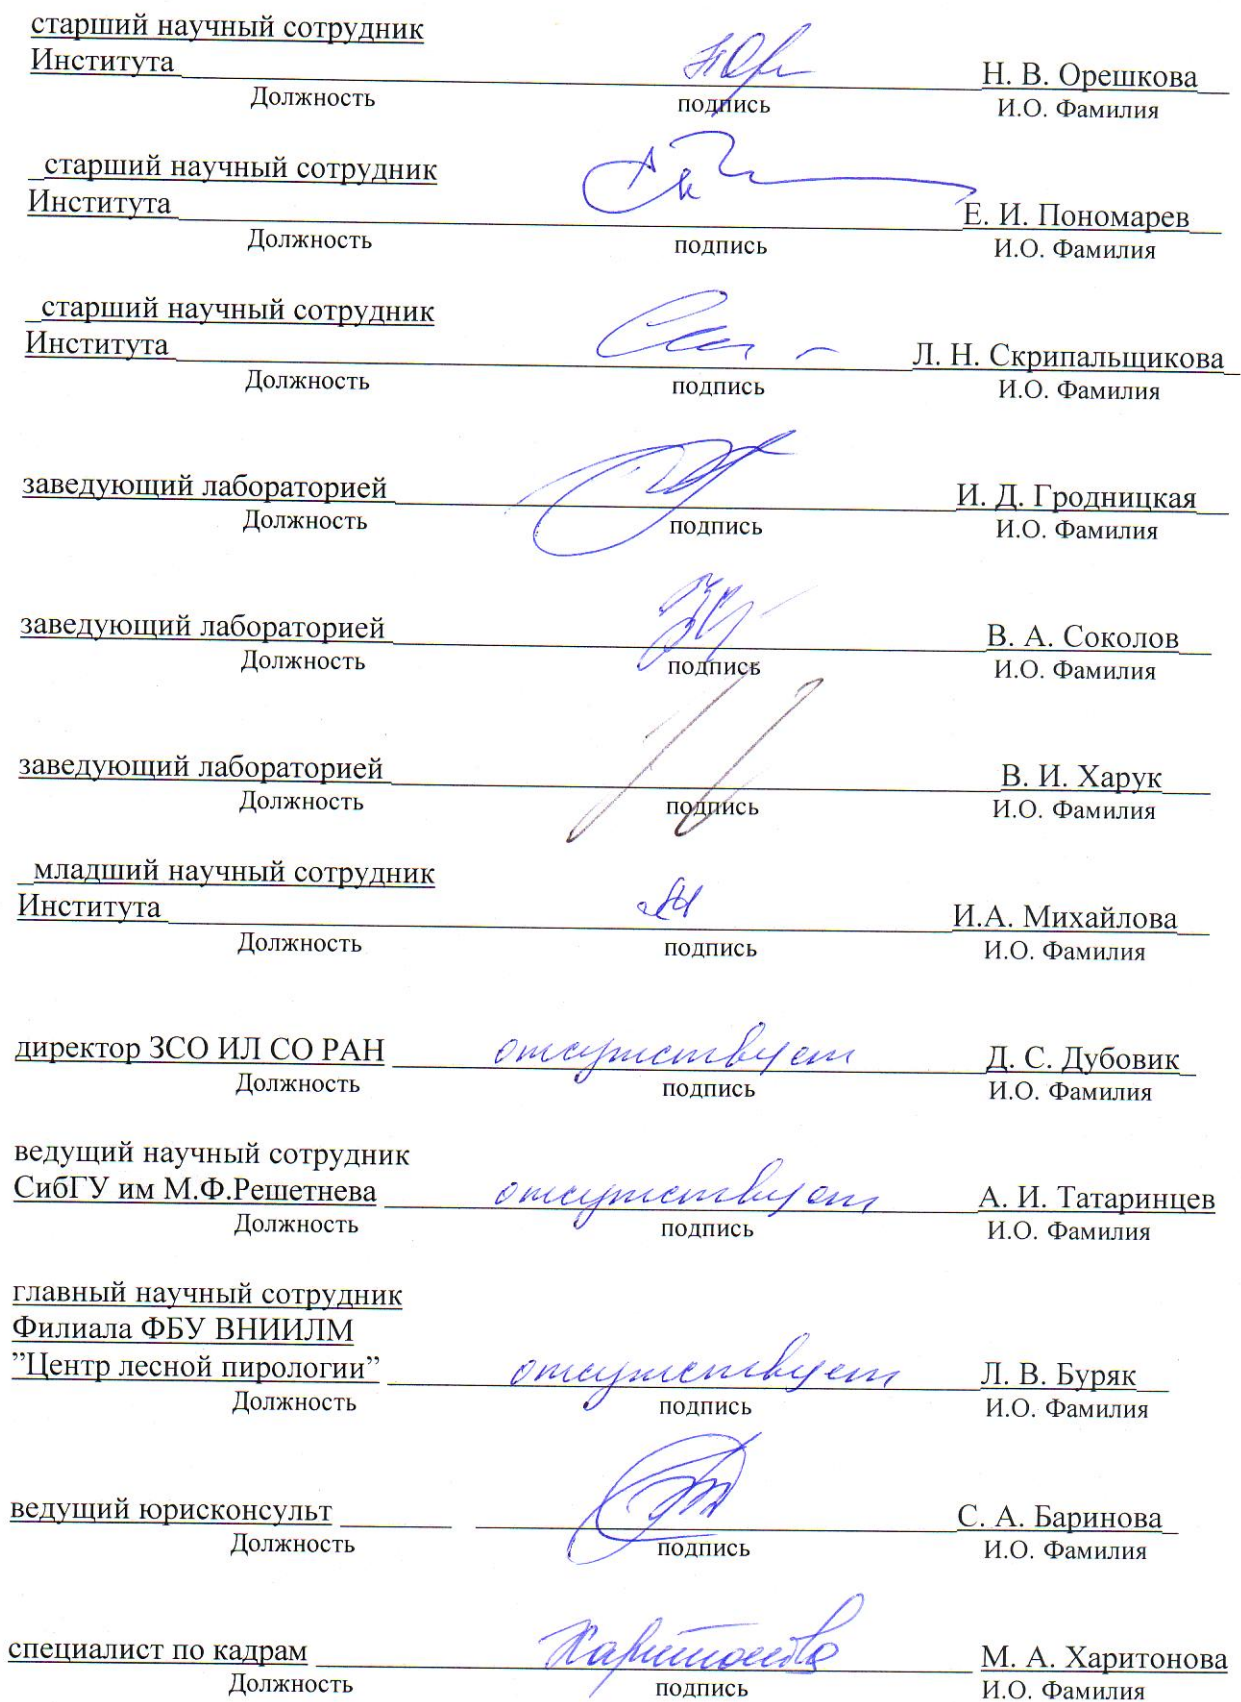 старший научный сотрудник
Института Н. В. Орешкова
Должность подпись И.О. Фамилия
старший научный сотрудник
Института Е. И. Пономарев
Должность подпись И.О. Фамилия
старший научный сотрудник
Института Л. Н. Скрипальщикова
Должность подпись И.О. Фамилия
заведующий лабораторией И. Д. Гродницкая
Должность подпись И.О. Фамилия
заведующий лабораторией В. А. Соколов
Должность подпись И.О. Фамилия
заведующий лабораторией В. И. Харук
Должность подпись И.О. Фамилия
младший научный сотрудник
Института И.А. Михайлова
Должность подпись И.О. Фамилия
директор ЗСО ИЛ СО РАН отсутствует Д. С. Дубовик
Должность подпись И.О. Фамилия
ведущий научный сотрудник
СибГУ им М.Ф.Решетнева отсутствует А. И. Татаринцев
Должность подпись И.О. Фамилия
главный научный сотрудник
Филиала ФБУ ВНИИЛМ
”Центр лесной пирологии” отсутствует Л. В. Буряк
Должность подпись И.О. Фамилия
ведущий юрисконсульт С. А. Баринова
Должность подпись И.О. Фамилия
специалист по кадрам Харитонова М. А. Харитонова
Должность подпись И.О. Фамилия